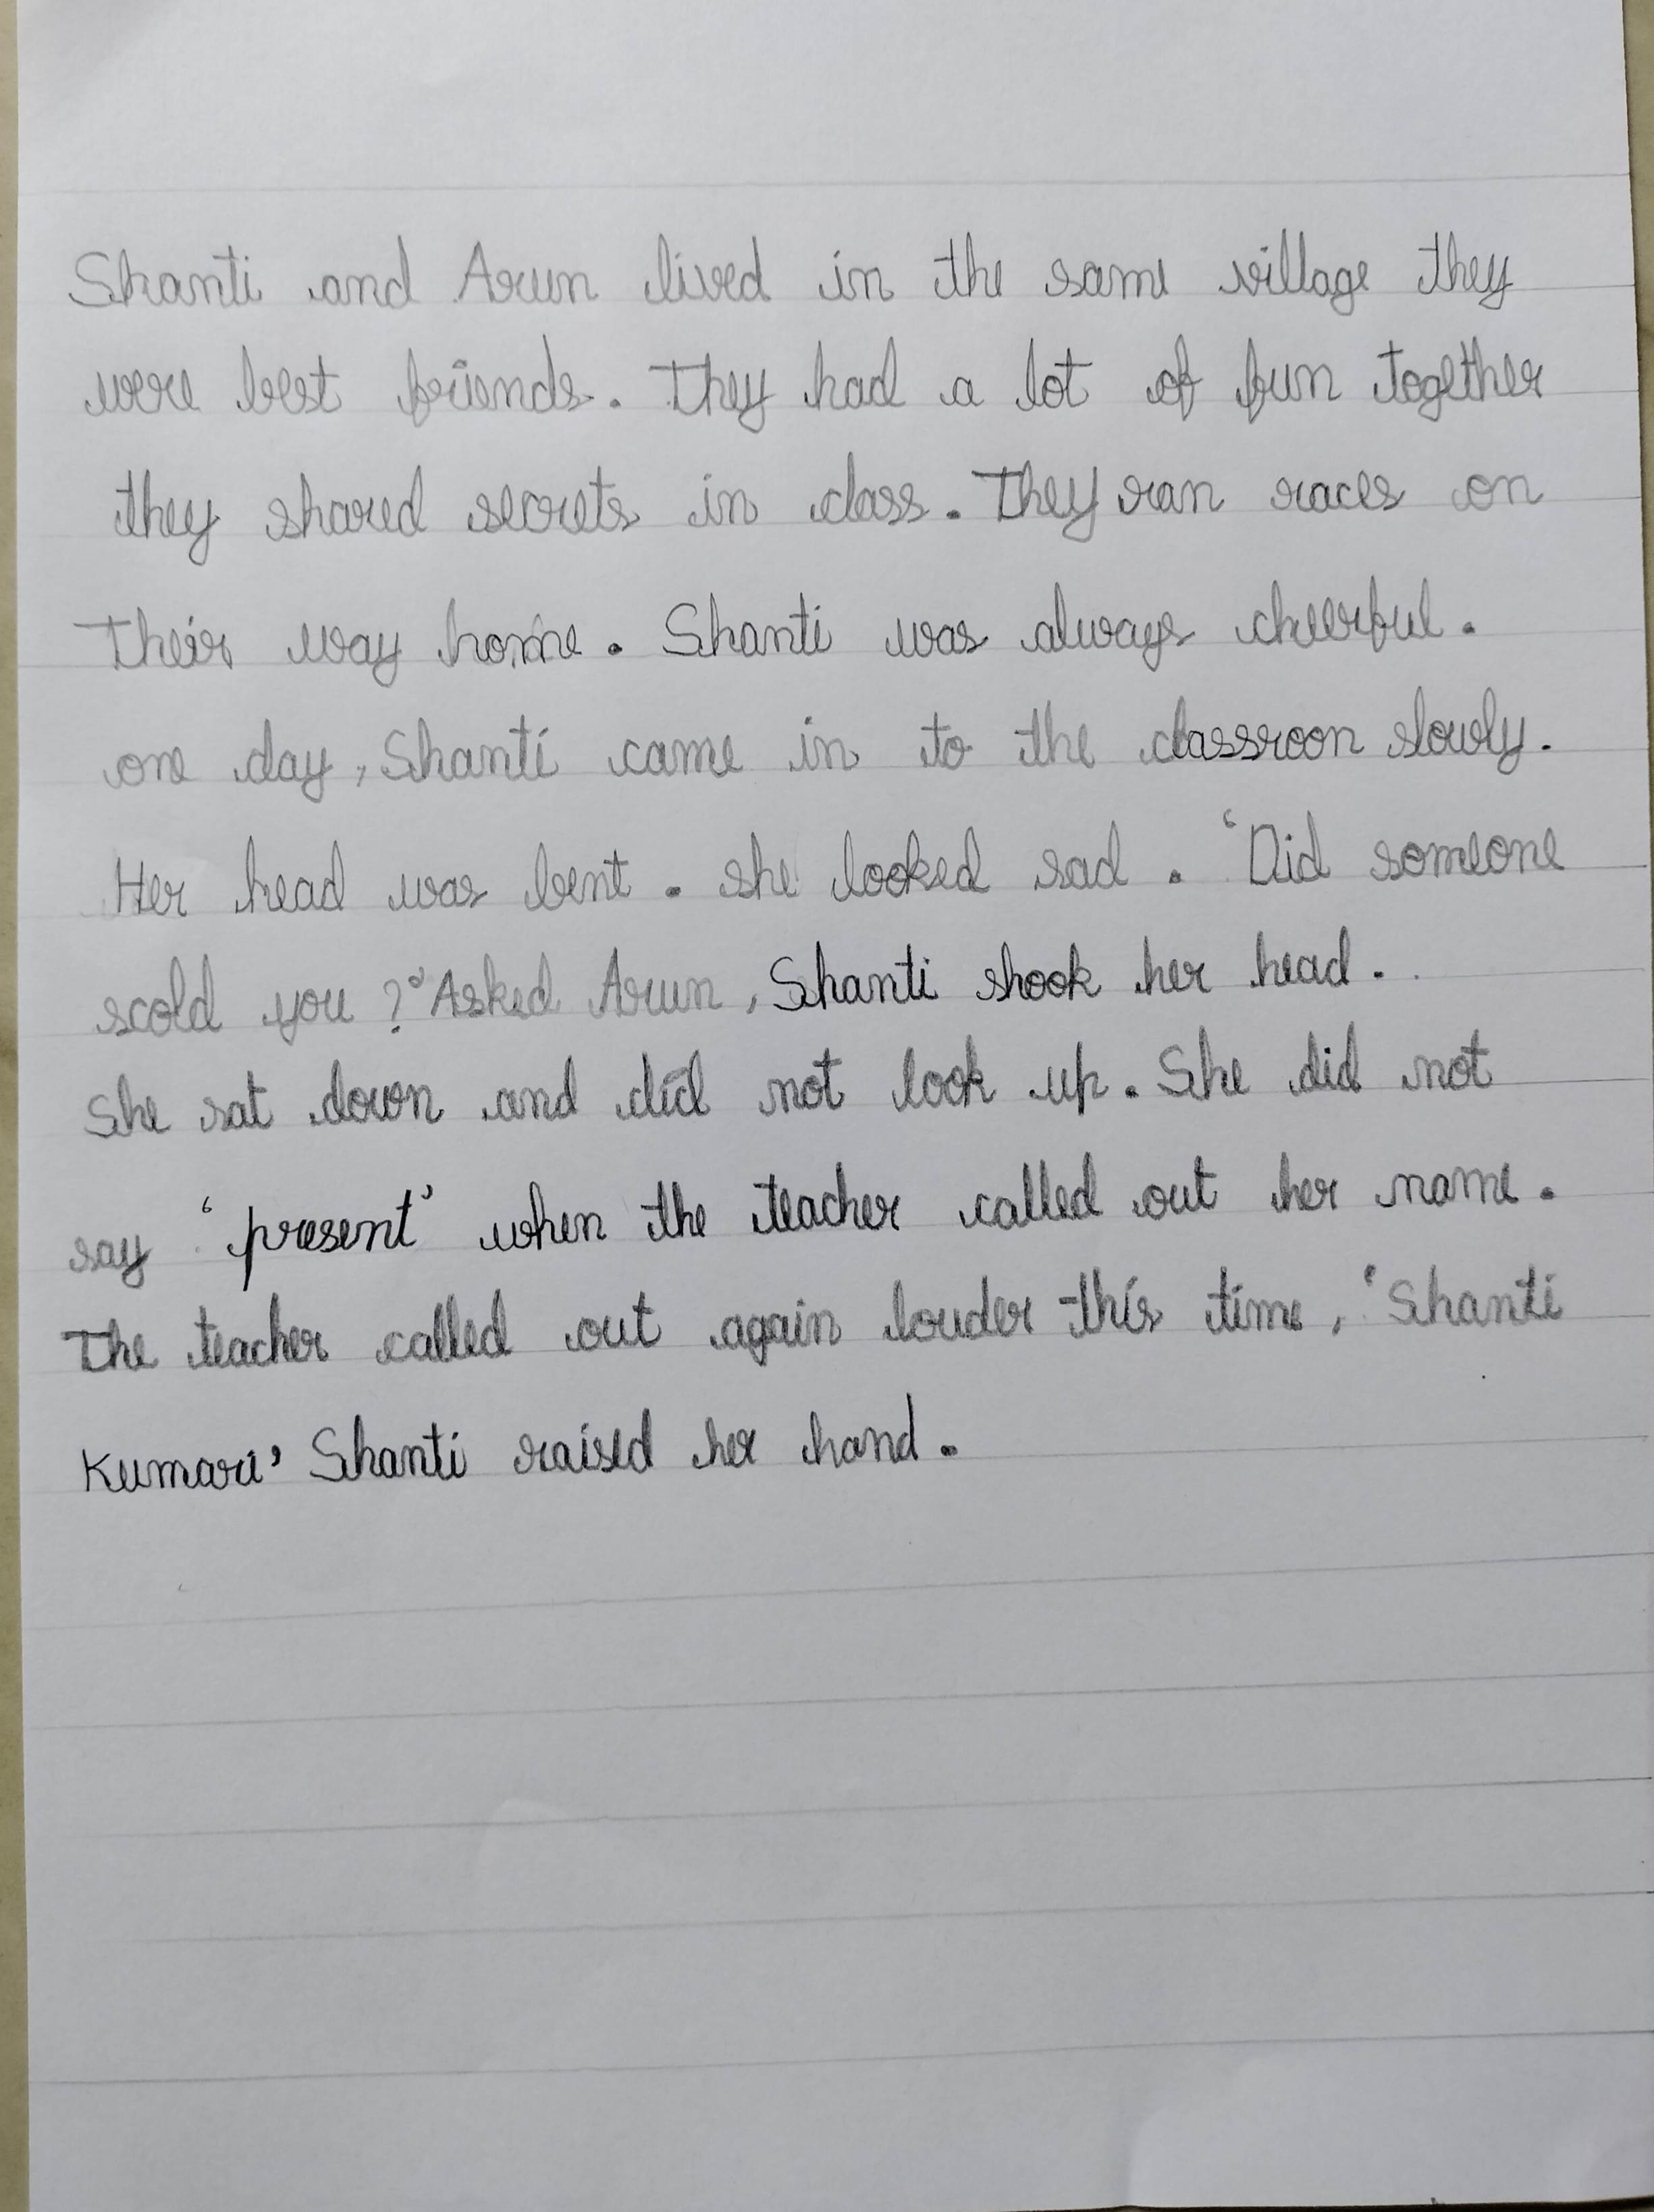 Shanti and Arun lived in the same village they
were best friends. They had a lot of fun together
they shared secrets in class. They ran races on
Their way home. Shanti was always cheerful.
one day, Shanti came in to the classroon slowly.
Her head was bent. she looked sad. 'Did someone
scold you?' Asked Arun, Shanti shook her head.
She sat down and did not look up. She did not
say 'present' when the teacher called out her name.
The teacher called out again louder this time, 'Shanti
Kumari' Shanti raised her hand.